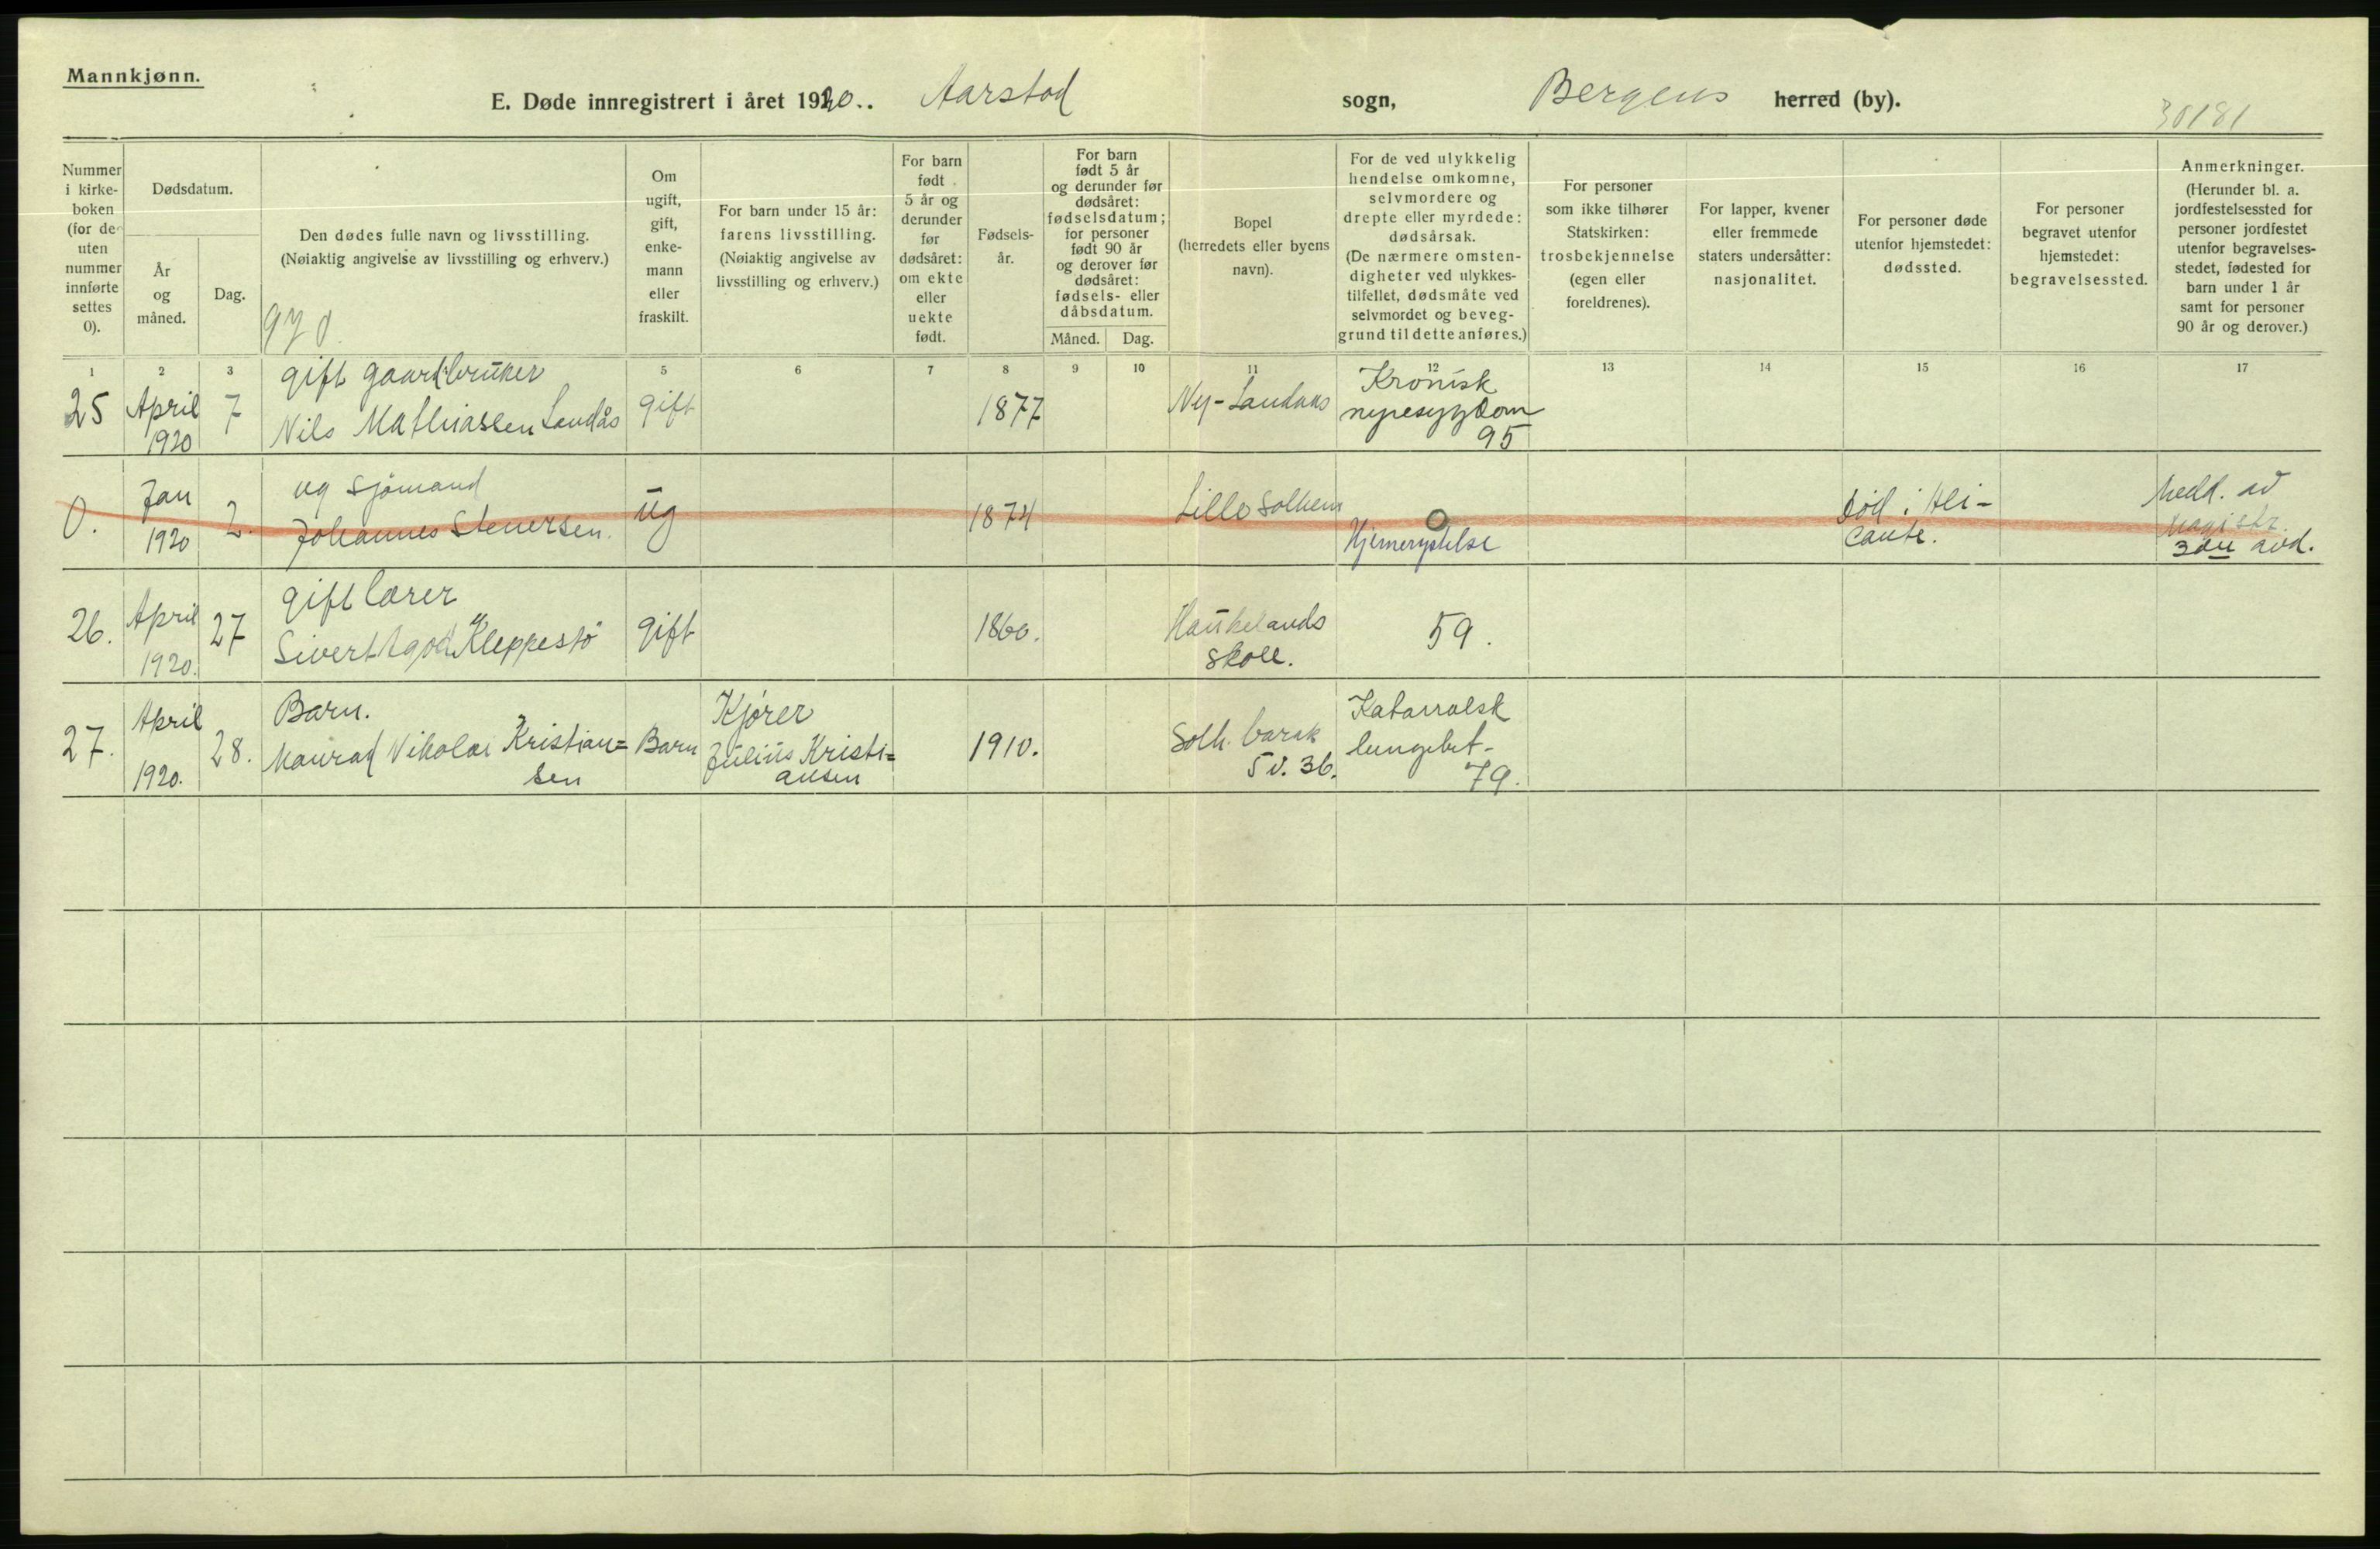 Mannkjønn.
E. Døde innregistrert i året 1920.. Aarstad sogn, Bergens herred (by).
30181
Nummer i kirke- boken (for de uten nummer innførte settes 0).
Dødsdatum.
År og måned.
Dag.
Den dødes fulle navn og livsstilling.
(Nøiaktig angivelse av livsstilling og erhverv.)
970
Om ugift, gift, enke- mann eller fraskilt.
For barn under 15 år:
farens livsstilling.
(Nøiaktig angivelse av
livsstilling og erhverv.)
For barn født 5 år og derunder før dødsåret: om ekte eller uekte født.
Fødsels- år.
For barn født 5 år og derunder før dødsåret: fødselsdatum; for personer født 90 år og derover før dødsåret: fødsels- eller dåbsdatum.
Måned. Dag.
Bopel
(herredets eller byens
navn).
For de ved ulykkelig
hendelse omkomne,
selvmordere og
drepte eller myrdede:
dødsårsak.
(De nærmere omsten-
digheter ved ulykkes-
tilfellet, dødsmåte ved
selvmordet og beveg-
grund til dette anføres.)
For personer
som ikke tilhører
Statskirken:
trosbekjennelse
(egen eller
foreldrenes).
For lapper, kvener
eller fremmede
staters undersåtter:
nasjonalitet.
For personer døde
utenfor hjemstedet:
dødssted.
For personer
begravet utenfor
hjemstedet:
begravelsessted.
Anmerkninger.
(Herunder bl. a.
jordfestelsessted for
personer jordfestet
utenfor begravelses-
stedet, fødested for
barn under 1 år
samt for personer
90 år og derover.)
1 2 3 5 6 7 8 9 10 11 12 13 14 15 16 17
25 April 1920 7
gift gaardbruker
Nils Mathiassen Landås
gift 1877 Ny-Landaas
Kronisk
nyresygdom
95
0. Jan 1920 2.
ug sjømand
Johannes Stenersen.
ug 1874 Lille Solheim
Hjernerystelse
død i Ali-
cante.
Medd. av
Magistr.
3die avd.
26. April 1920. 27
gift lærer
Sivert Agod Kleppestø
gift 1860.
Haukelands
skole.
59.
27. April 1920. 28.
Barn.
Konrad Nikolai Kristian=
sen
Barn
Kjører
Julius Kristi=
ansen
1910.
Solh. barak
5 v. 36.
Katarralsk
lungebet-
79.